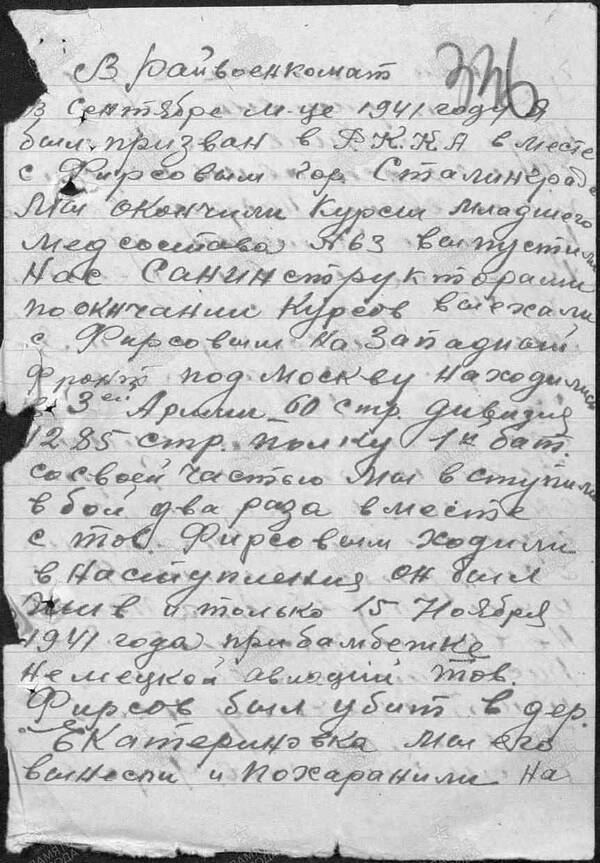 336
В Райвоенкомат
В Сентябре м-це 1941 году Я
был призван в Р.К.К.А вместе
с Фирсовым гор. Сталинграде
Мы окончили Курсы младшего
медсостава №63 выпустили
нас Санинструкторами
по окнчании Курсов выехали
с Фирсовым на Западный
Фронт под Москву находились
в 3ей Армии 60 стр. дивизия
1285 стр. полку 1й бат.
со своей частью Мы вступили
в бой два раза вместе
с тов. Фирсовым ходили
в наступления он был
жив и только 15 Ноября
1941 года прибамбежке
немецкой авиоций тов.
Фирсов был убит в дер.
Екатериновка мы его
вынесли и похаранили на